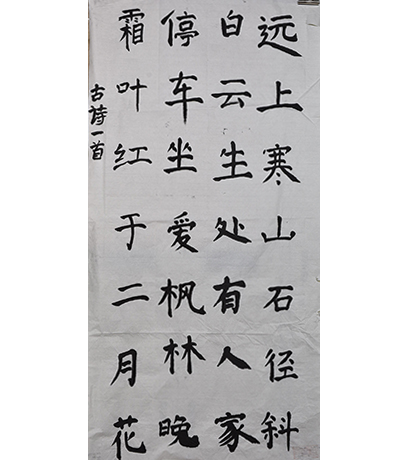 远上寒山石径斜
白云生处有人家
停车坐爱枫林晚
霜叶红于二月花
古诗一首